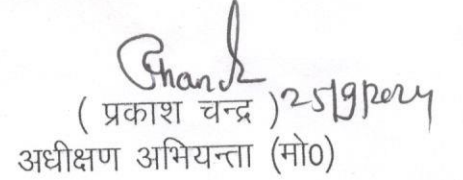 Chand
( प्रकाश चन्द्र ) 25/9/2024
अधीक्षण अभियन्ता (मो0)